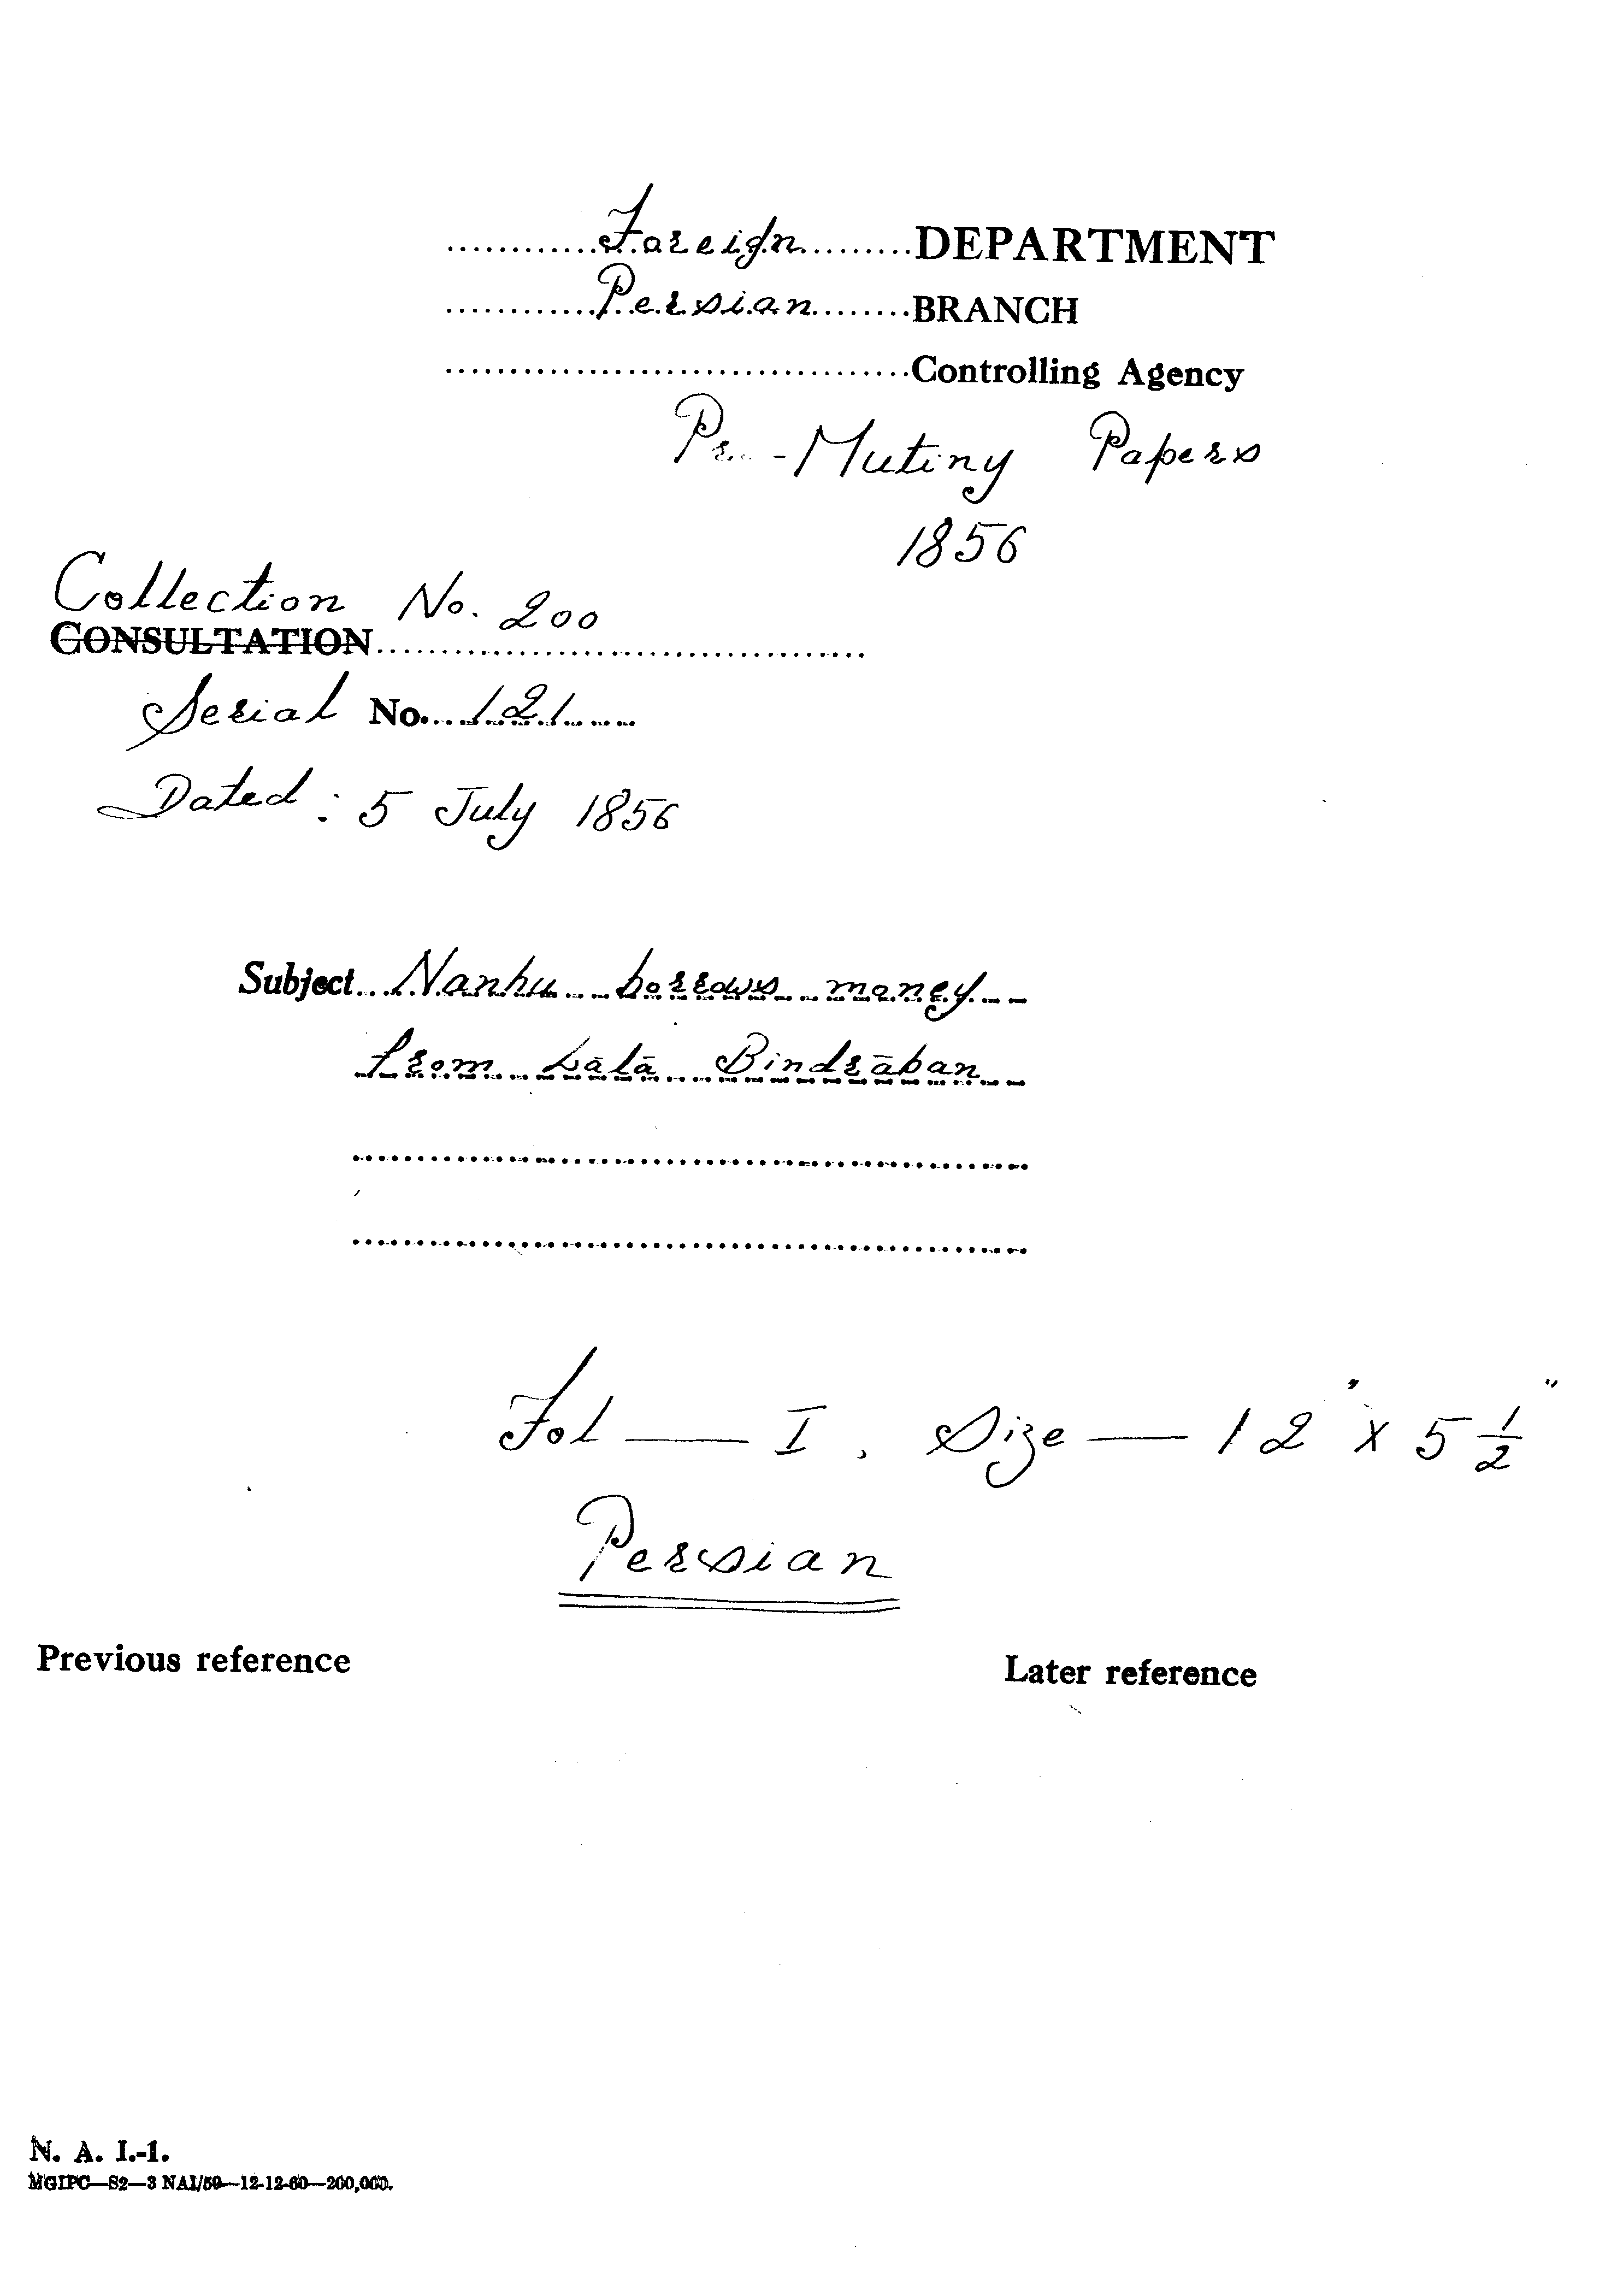 Foreign DEPARTMENT
Persian BRANCH
Controlling Agency
Pre-Mutiny Papers
1856
Collection No. 200
CONSULTATION
Serial No. 121
Dated : 5 July 1856
Subject Nanhu borrows money
from Lālā Bindrāban
Fol — I, Size — 12" x 5 1/2"
Persian
Previous reference
Later reference
N. A. I.-1.
MGIPC—S2—3 NAI/59—12-12-60—200,000.